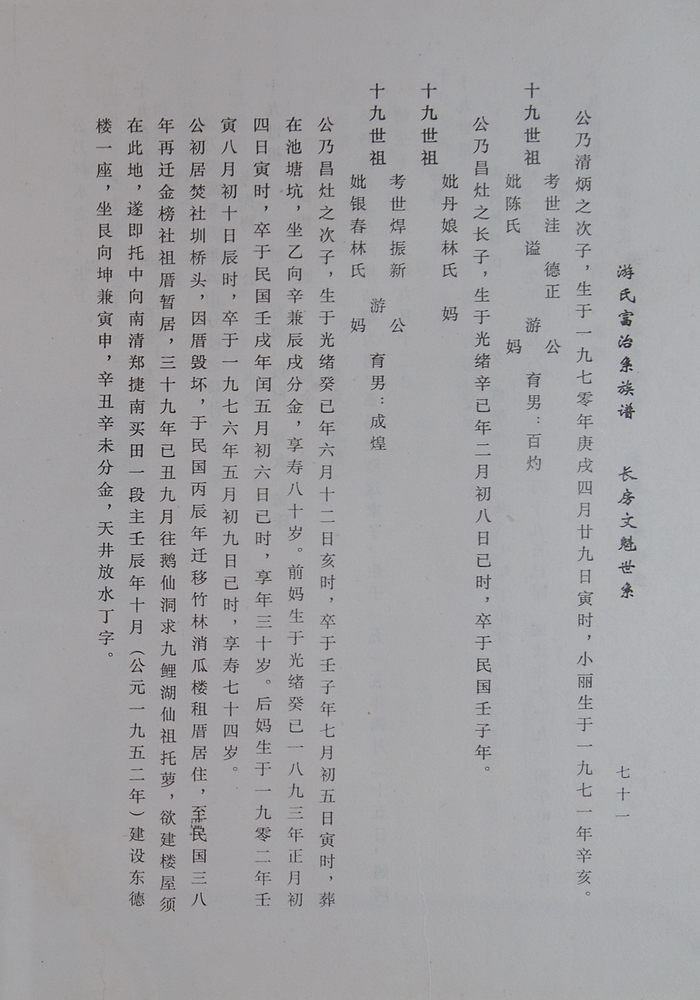 游氏富治系族谱　长房文魁世系　七十一
公乃清炳之次子，生于一九七零年庚戌四月廿九日寅时，小丽生于一九七一年辛亥。
十九世祖
考世洼　德正　公
谥　游　育男：百灼
妣陈氏　妈
公乃昌灶之长子，生于光绪辛巳年二月初八日巳时，卒于民国壬子年。
十九世祖
妣丹娘林氏　妈
十九世祖
考世焊振新　公
游　育男：成煌
妣银春林氏　妈
公乃昌灶之次子，生于光绪癸巳年六月十二日亥时，卒于壬子年七月初五日寅时，葬
在池塘坑，坐乙向辛兼辰戌分金，享寿八十岁。前妈生于光绪癸巳一八九三年正月初
四日寅时，卒于民国壬戌年闰五月初六日巳时，享年三十岁。后妈生于一九零二年壬
寅八月初十日辰时，卒于一九七六年五月初九日巳时，享寿七十四岁。
公初居焚社圳桥头，因厝毁坏，于民国丙辰年迁移竹林消瓜楼租厝居住，至民国三八
年再迁金榜社祖厝暂居，三十九年己丑九月往鹅仙洞求九鲤湖仙祖托萝，欲建楼屋须
在此地，遂即托中向南清郑捷南买田一段主壬辰年十月（公元一九五二年）建设东德
楼一座，坐艮向坤兼寅申，辛丑辛未分金，天井放水丁字。